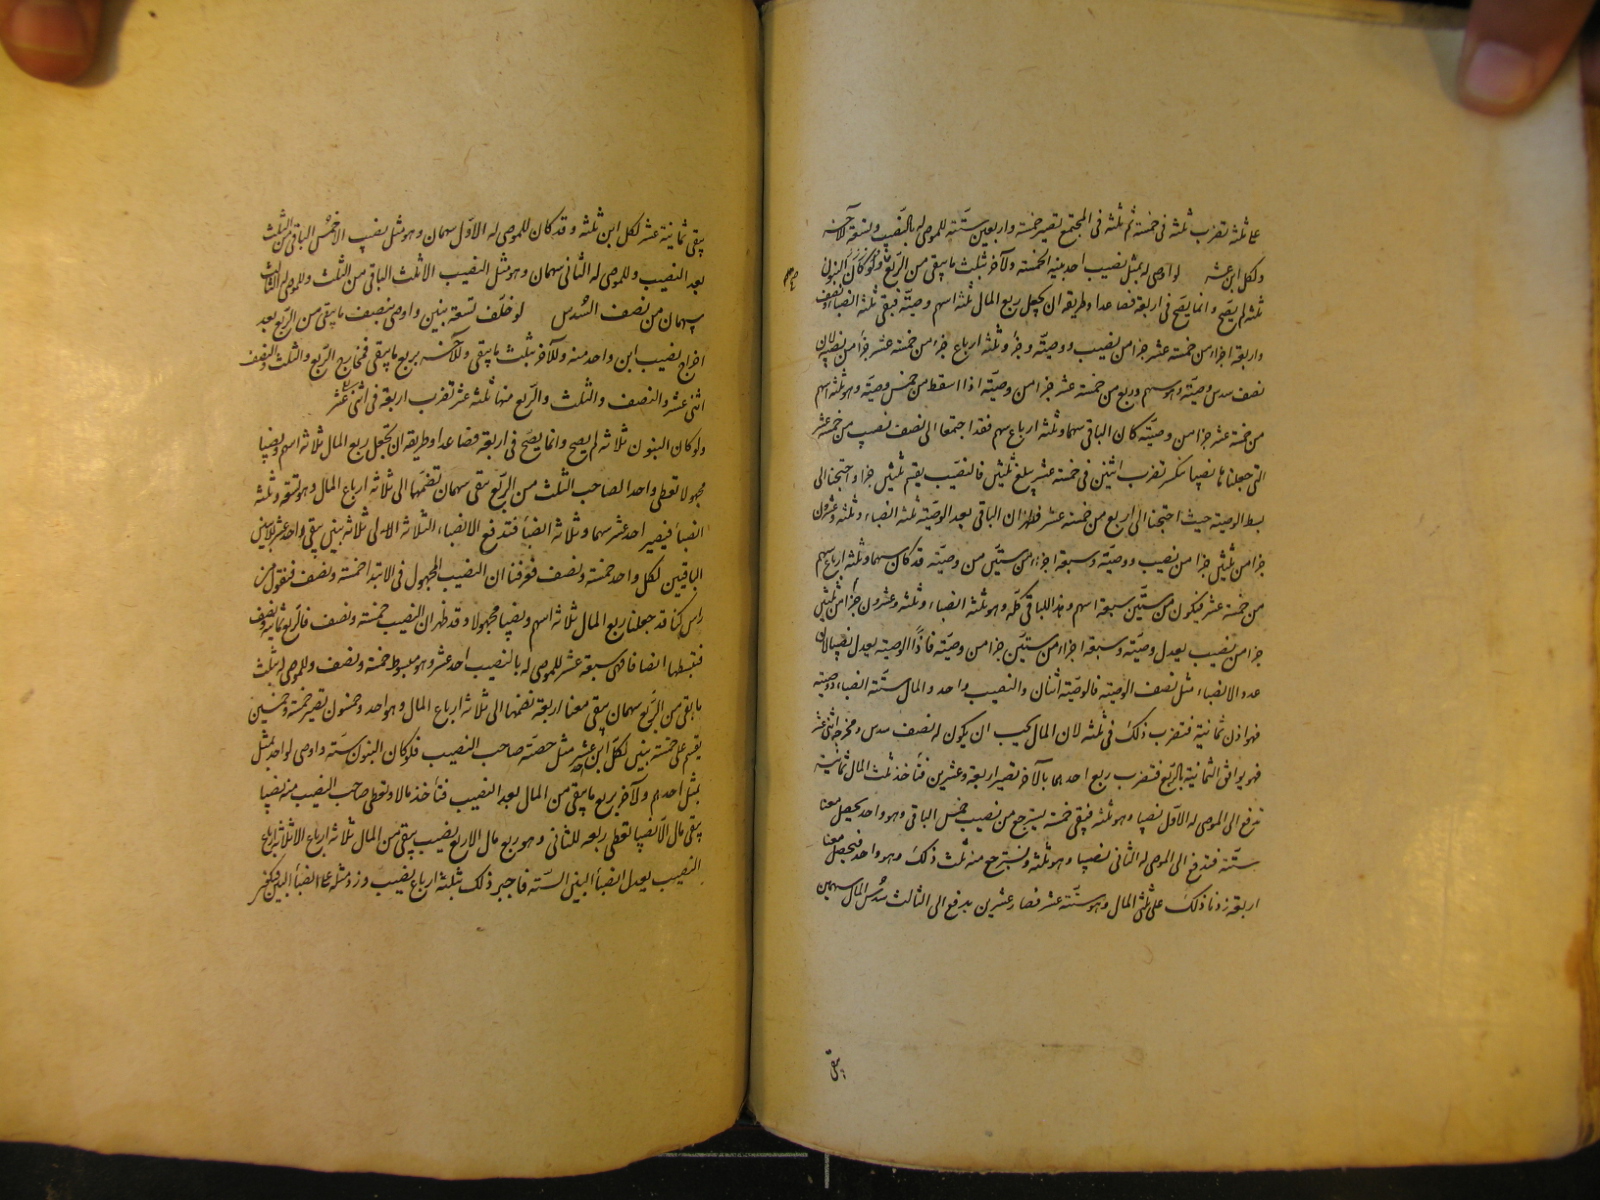 على ثلثه تضرب ثلثه فى خمسة ثم ثلثه فى المجتمع تصير خمسة واربعين ستّة للموصى له بالنّصيب وتسعة للآخر
ولكل ابن عشرة لو اوصى له بمثل نصيب احد بنيه الخمسة ولآخر بثلث ما يبقى من الرّبع ولو كان البنون
ثلثة لم يصح وانما يصح فى اربعة فصاعدا وطريقه ان تجعل ربع المال ثلثة اسهم ووصيّة فيبقى ثلثة انصباء
واربعة اجزاء من خمسة عشر جزأ من نصيب ووصيّة وجزء وثلثة ارباع جزء من خمسة عشر جزأ من نصيب لان
نصف سدس وصيّة وهو سهم وربع من خمسة عشر جزأ من وصيّة اذا اسقط من خمس وصيّة وهو ثلثة اسهم
من خمسة عشر جزأ من وصيّة كان الباقى سهما وثلثة ارباع سهم فقد احتجنا الى نصف نصيب من خمسة عشر
التى جعلناها نصيبا تنكسر تضرب اثنين فى خمسة عشر يبلغ ثلثين فالنصيب يقسم ثلثين جزأ واحتجنا الى
بسط الوصية حيث احتجنا الى اربع من خمسة عشر فظهر ان الباقى بعد الوصيّة ثلثة انصباء وثلثة وعشرون
جزأ من ثلثين جزأ من نصيب ووصيّة وسبعة اجزاء من ستّين من وصيّة قد كان سهما وثلثة ارباع سهم
من خمسة عشر فيكون من ستّين سبعة اسهم وهذا الباقى كلّه وهو ثلثة انصباء وثلثة وعشرون جزأ من ثلثين
جزأ من نصيب يعدل وصيّة وسبعة اجزاء من ستّين جزأ من وصيّة فاذا الوصيّة يعدل نصيبا لان
عدد الانصباء مثل نصف الوصيّة فالوصيّة اثنان والنصيب واحد والمال ستّة انصباء ووصية
فهو اذن ثمانية فتضرب ذلك فى ثلثة لان المال يجب ان يكون له نصف سدس ومخرجه اثنى عشر
فهو يوافق الثمانية بالرّبع فتضرب ربع احدهما بالآخر تصير اربعة وعشرين فتأخذ ثلث المال ثمانية
ترفع الى الموصى له الاول نصيبا وهو ثلثة فيبقى خمسة يسترجع من نصيب خمس الباقى وهو واحد يحصل معنا
ستّة فندفع الى الموصى له الثانى نصيبا وهو ثلثة ونسترجع منه ثلث ذلك وهو واحد فيحصل معنا
اربعة زدنا ذلك على ثلثى المال وهو ستّة عشر فصار عشرين يدفع الى الثالث سدس المال سهمين
يبقى
يبقى ثمانية عشر لكل ابن ثلثة وقد كان للموصى له الاوّل سهمان وهو مثل نصيب الا خمس الباقى من الثلث
بعد النصيب وللموصى له الثانى سهمان وهو مثل النصيب الا ثلث الباقى من الثلث وللموصى له الثالث
سهمان من نصف السّدس لو خلّف تسعة بنين واوصى بنصف ما يبقى من الرّبع بعد
اخراج نصيب ابن واحد منه وللآخر بثلث ما يبقى وللآخر بربع ما يبقى فمخارج الرّبع والثلث والنصف
اثنى عشر والنصف والثلث والرّبع منها ثلثة عشر تضرب اربعة فى اثنى عشر
ولو كان البنون ثلاثة لم يصح وانما يصح فى اربعة فصاعدا وطريقه ان تجعل ربع المال ثلاثة اسهم ونصيبا
مجهولا تعطى واحدا لصاحب الثلث من الرّبع يبقى سهمان تضمّهما الى ثلاثة ارباع المال وهو تسعة وثلثة
انصباء فيصير احد عشر سهما وثلاثة انصباء فتدفع الانصباء الثلاثة الى ثلاثة بنين يبقى واحد عشر بين
الباقيين لكل واحد خمسة ونصف فعرفنا ان النصيب المجهول فى الابتدا خمسة ونصف فنقول من
راس كنا قد جعلنا ربع المال ثلاثة اسهم ونصيبا مجهولا وقد ظهر ان النصيب خمسة ونصف فالربع ثمانية ونصف
فنبسطها انصافا فهى سبعة عشر للموصى له بالنصيب احد عشر وهو مبسوط خمسة ونصف وللموصى له بثلث
ما بقى من الربع سهمان يبقى معنا اربعة نضمها الى ثلاثة ارباع المال وهو احد وخمسون تصير خمسة وخمسين
يقسم على خمسة بنين لكل ابن احد عشر مثل حصّة صاحب النصيب فلو كان البنون ستة واوصى لواحد بمثل
بمثل احدهم ولآخر بربع ما يبقى من المال بعد النصيب فتأخذ مالا وتعطى صاحب النصيب منه نصيبا
يبقى مال الّا نصيبا تعطى ربعه للثانى وهو ربع مال الا ربع نصيب يبقى من المال ثلاثة ارباع الا ثلاثة ارباع
النصيب يعدل انصباء البنين الستة فاجبر ذلك بثلثة ارباع نصيب وزد مثله على انصباء البنين فيكون